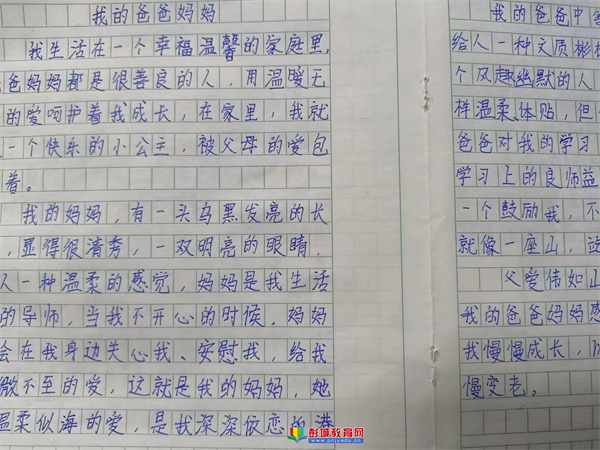 我的爸爸妈妈
我生活在一个幸福温馨的家庭里,
爸妈妈都是很善良的人,用温暖无
的爱呵护着我成长,在家里,我就
一个快乐的小公主,被父母的爱包
着。
我的妈妈,有一头乌黑发亮的长
,显得很清秀,一双明亮的眼睛,
人一种温柔的感觉,妈妈是我生活
的导师,当我不开心的时候,妈妈
会在我身边关心我、安慰我,给我
微不至的爱,这就是我的妈妈,她
温柔似海的爱,是我深深依恋的港
我的爸爸中等
给人一种文质彬彬
个风趣幽默的人
样温柔、体贴,但
爸爸对我的学习
学习上的良师益
一个鼓励我,不
就像一座山,这
父爱伟如山
我的爸爸妈妈感
我慢慢成长,
慢变老。
彭城教育网
www.pcjyedu.cn